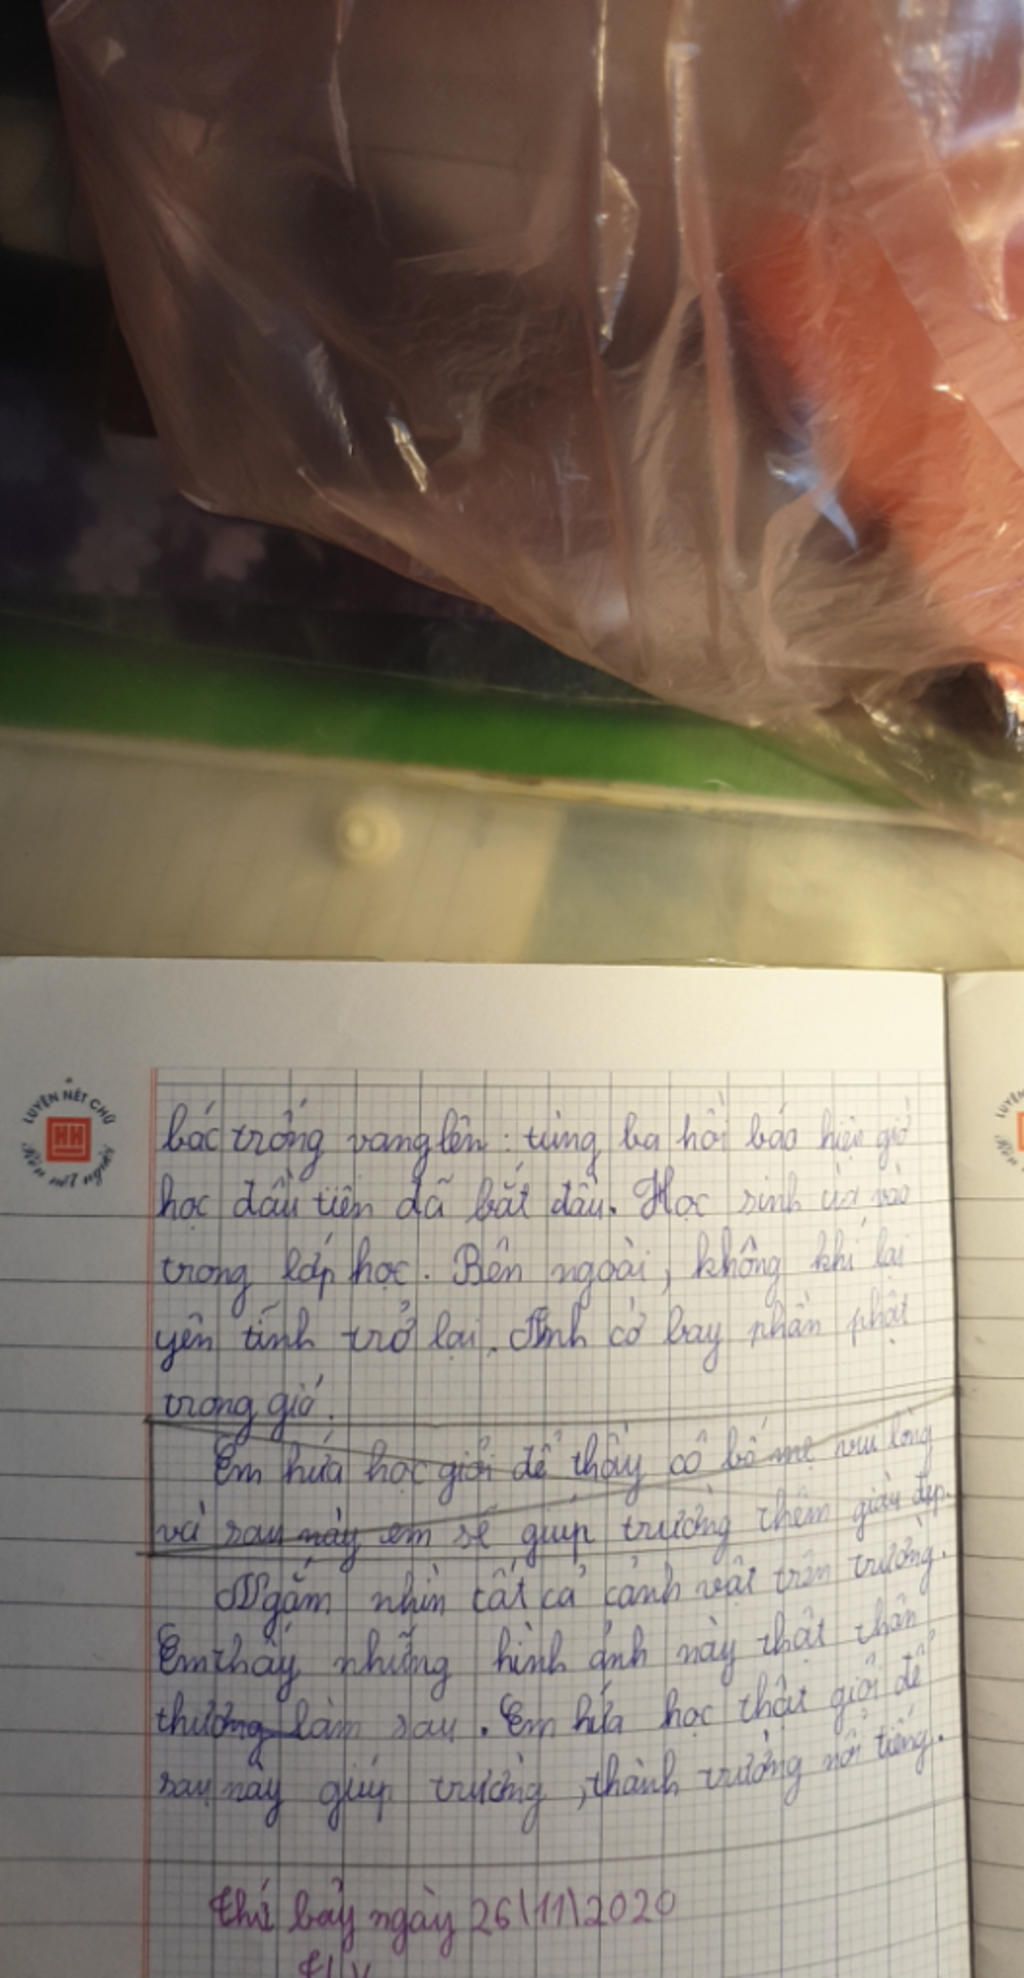 LUYỆN NÉT CHỮ
HH
Rèn nết người
LUYỆN
bác trống vang lên : từng ba hồi báo hiệu giờ
học đầu tiên đã bắt đầu. Học sinh ùa vào
trong lớp học. Bên ngoài, không khí lại
yên tĩnh trở lại. Ảnh cờ bay phần phật
trong gió.
Em hứa học giỏi để thầy cô bố mẹ vui lòng
và sau này em sẽ giúp trường thêm giàu đẹp.
Ngắm nhìn tất cả cảnh vật trên trường.
Em thấy những hình ảnh này thật thân
thương làm sau. Em hứa học thật giỏi để
sau này giúp trường, thành trường nổi tiếng.
Thứ bảy ngày 26\11\2020